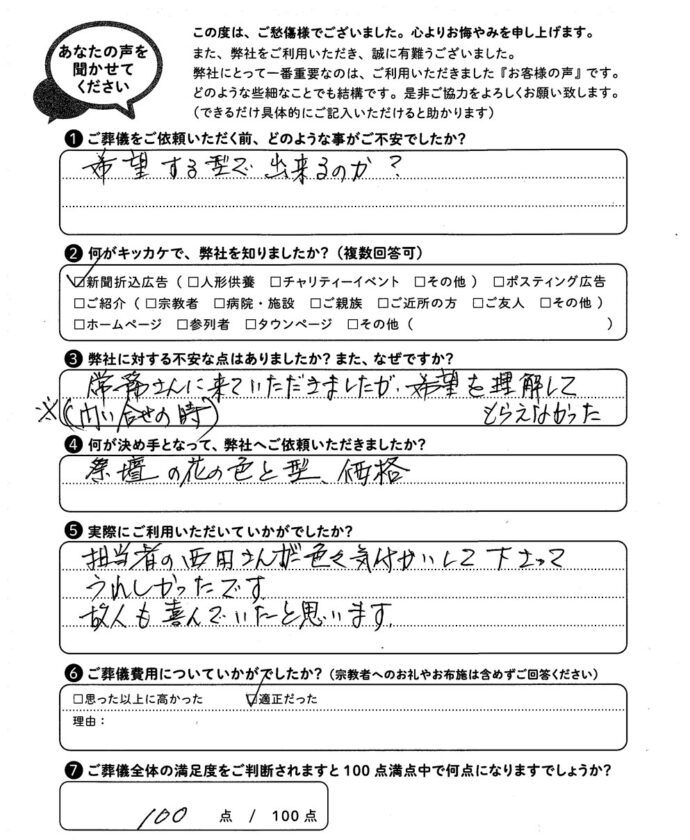 あなたの声を
聞かせて
ください
この度は、ご愁傷様でございました。心よりお悔やみを申し上げます。
また、弊社をご利用いただき、誠に有難うございました。
弊社にとって一番重要なのは、ご利用いただきました『お客様の声』です。
どのような些細なことでも結構です。是非ご協力をよろしくお願い致します。
(できるだけ具体的にご記入いただけると助かります)
❶ ご葬儀をご依頼いただく前、どのような事がご不安でしたか?
希望する型で出来るのか?
❷ 何がキッカケで、弊社を知りましたか?(複数回答可)
☑新聞折込広告(□人形供養 □チャリティーイベント □その他) □ポスティング広告
□ご紹介(□宗教者 □病院・施設 □ご親族 □ご近所の方 □ご友人 □その他)
□ホームページ □参列者 □タウンページ □その他( )
❸ 弊社に対する不安な点はありましたか?また、なぜですか?
さんに来ていただきましたが、希望を理解して
※(問い合せの時) もらえなかった
❹ 何が決め手となって、弊社へご依頼いただきましたか?
祭壇の花の色と型、価格
❺ 実際にご利用いただいていかがでしたか?
担当者の西田さんが色々気付かいして下さって
うれしかったです
故人も喜んでいたと思います.
❻ ご葬儀費用についていかがでしたか?(宗教者へのお礼やお布施は含めずご回答ください)
□思った以上に高かった ☑適正だった
理由:
❼ ご葬儀全体の満足度をご判断されますと100点満点中で何点になりますでしょうか?
100 点 / 100点